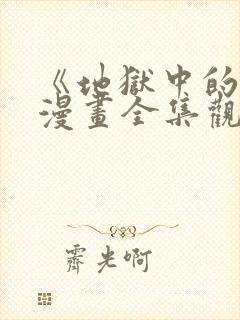 《地獄中的
漫畫全集觀
霽光啊